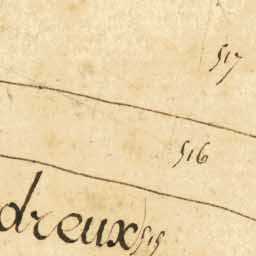 517
516
dreux
515